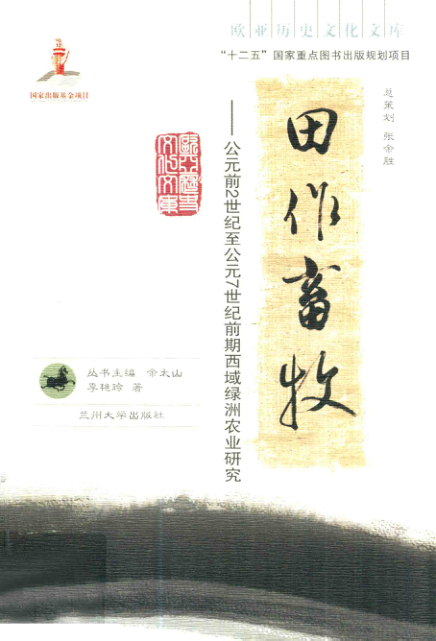 欧亚历史文化文库
“十二五”国家重点图书出版规划项目
国家出版基金项目
总策划 张余胜
田作畜牧
——公元前2世纪至公元7世纪前期西域绿洲农业研究
欧亚历史
文化文库
丛书主编 余太山
李艳玲 著
兰州大学出版社